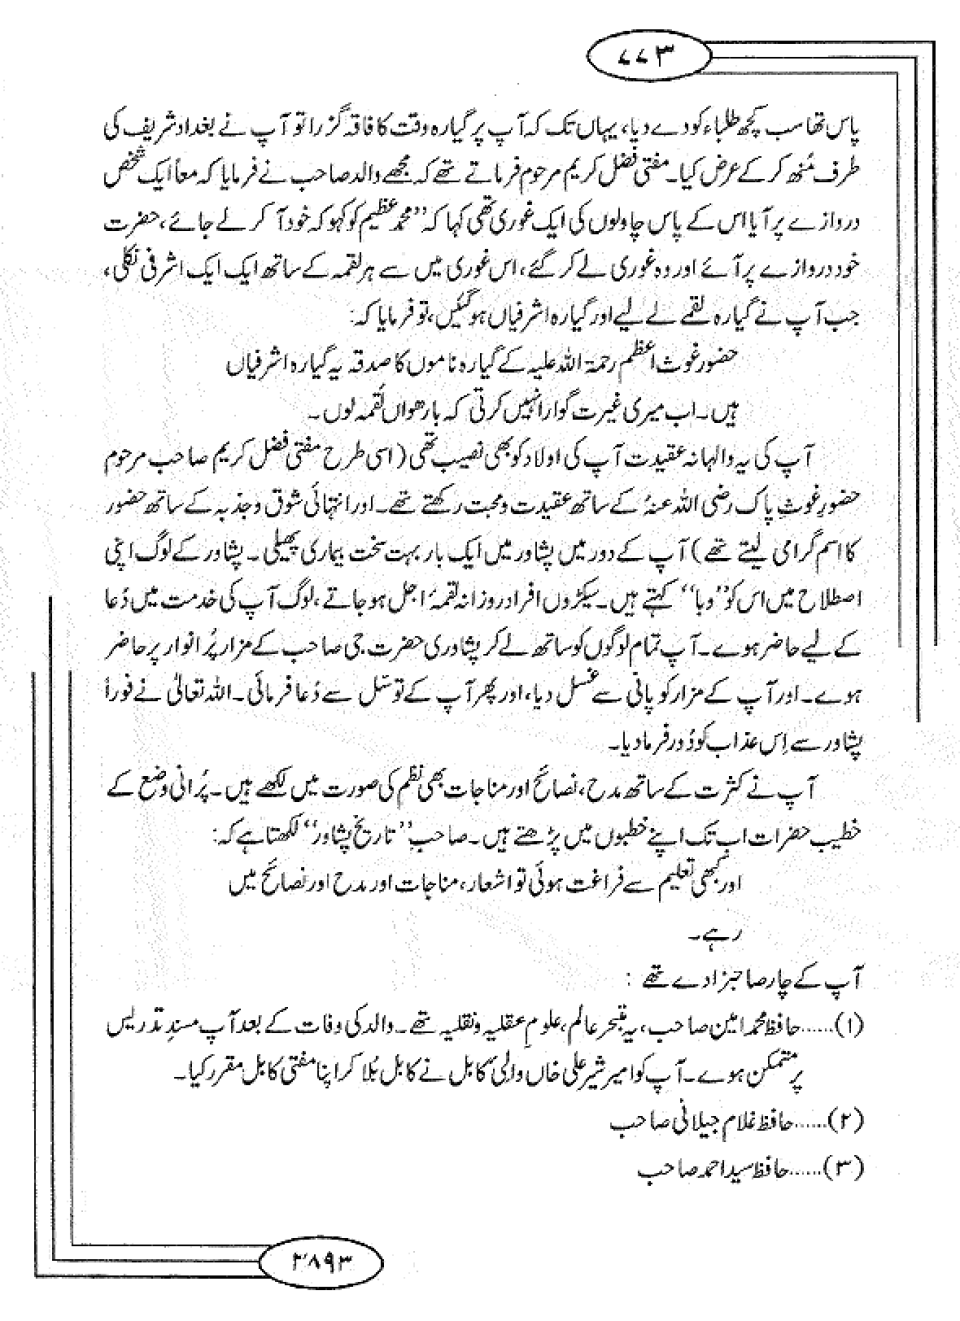 ۷۷۳
پاس تھا سب کچھ طلباء کو دے دیا، یہاں تک کہ آپ پر گیارہ وقت کا فاقہ گزرا تو آپ نے بغداد شریف کی
طرف مُنھ کر کے عرض کیا۔ مفتی فضل کریم مرحوم فرماتے تھے کہ مجھے والد صاحب نے فرمایا کہ معاً ایک شخص
دروازے پر آیا اس کے پاس چاولوں کی ایک غوری تھی کہا کہ ”محمد عظیم کو کہو کہ خود آ کر لے جائے، حضرت
خود دروازے پر آئے اور وہ غوری لے کر گئے، اس غوری میں سے ہر لقمہ کے ساتھ ایک ایک اشرفی نکلی،
جب آپ نے گیارہ لقمے لے لیے اور گیارہ اشرفیاں ہو گئیں، تو فرمایا کہ:
حضور غوث اعظم رحمۃ اللہ علیہ کے گیارہ ناموں کا صدقہ یہ گیارہ اشرفیاں
ہیں۔ اب میری غیرت گوارا نہیں کرتی کہ بارھواں لُقمہ لوں۔
آپ کی یہ والہانہ عقیدت آپ کی اولاد کو بھی نصیب تھی (اسی طرح مفتی فضل کریم صاحب مرحوم
حضورِ غوثِ پاک رضی اللہ عنہٗ کے ساتھ عقیدت و محبت رکھتے تھے۔ اور انتہائی شوق و جذبہ کے ساتھ حضور
کا اسم گرامی لیتے تھے) آپ کے دور میں پشاور میں ایک بار بہت سخت بیماری پھیلی۔ پشاور کے لوگ اپنی
اصطلاح میں اس کو ”وبا“ کہتے ہیں۔ سیکڑوں افراد روزانہ لقمۂ اجل ہو جاتے، لوگ آپ کی خدمت میں دُعا
کے لیے حاضر ہوے۔ آپ تمام لوگوں کو ساتھ لے کر پشاوری حضرت جی صاحب کے مزار پُر انوار پر حاضر
ہوے۔ اور آپ کے مزار کو پانی سے غسل دیا، اور پھر آپ کے توسّل سے دُعا فرمائی۔ اللہ تعالیٰ نے فوراً
پشاور سے اِس عذاب کو دُور فرما دیا۔
آپ نے کثرت کے ساتھ مدح، نصائح اور مناجات بھی نظم کی صورت میں لکھے ہیں۔ پُرانی وضع کے
خطیب حضرات اب تک اپنے خطبوں میں پڑھتے ہیں۔ صاحبِ ”تاریخ پشاور“ لکھتا ہے کہ:
اور کبھی تعلیم سے فراغت ہوئی تو اشعار، مناجات اور مدح اور نصائح میں
رہے۔
آپ کے چار صاحبزادے تھے :
(۱)...... حافظ محمد امین صاحب، یہ متبحر عالم، علومِ عقلیہ و نقلیہ تھے۔ والد کی وفات کے بعد آپ مسندِ تدریس
پر متمکن ہوے۔ آپ کو امیر شیر علی خاں والیِ کابل نے کابل بُلا کر اپنا مفتی کابل مقرر کیا۔
(۲)...... حافظ غلام جیلانی صاحب
(۳)...... حافظ سید احمد صاحب
۲۸۹۳